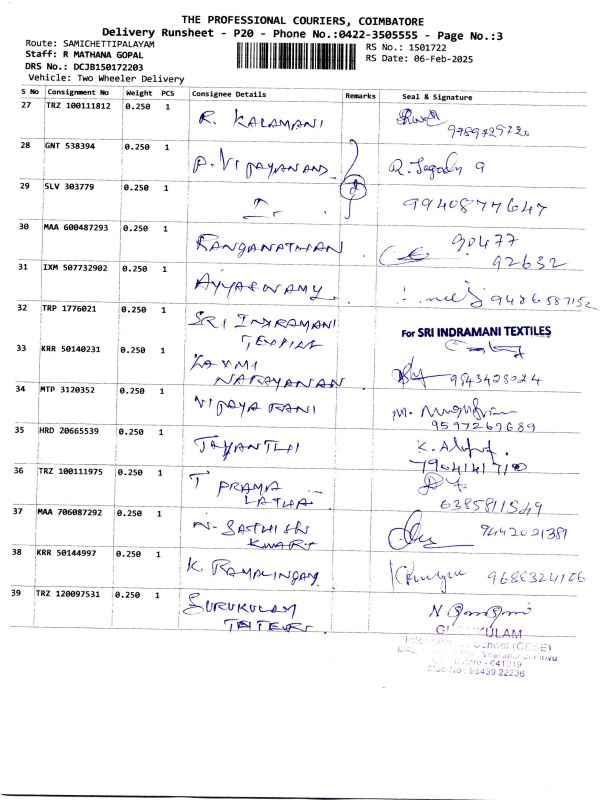 THE PROFESSIONAL COURIERS, COIMBATORE
Delivery Runsheet - P20 - Phone No.:0422-3505555 - Page No.:3
Route: SAMICHETTIPALAYAM
RS No.: 1501722
Staff: R MATHANA GOPAL
RS Date: 06-Feb-2025
DRS No.: DCJB150172203
Vehicle: Two Wheeler Delivery
S No Consignment No Weight PCS Consignee Details Remarks Seal & Signature
27 TRZ 100111812 0.250 1 R. KALAMANI
9789729720
28 GNT 538394 0.250 1 P. VIJAYANAND
29 SLV 303779 0.250 1 9940877647
30 MAA 600487293 0.250 1 RANGANATHAN 90477
92632
31 IXM 507732902 0.250 1 AYYASWAMY 9486587152
32 TRP 1776021 0.250 1 SRI INDRAMANI
For SRI INDRAMANI TEXTILES
33 KRR 50140231 0.250 1 LAXMI
NARAYANAN 9843428024
34 MTP 3120352 0.250 1 VIJAYA RANI
9597269689
35 HRD 20665539 0.250 1 JAYANTHI
7904141710
36 TRZ 100111975 0.250 1 T PRAMA
LATHA 6385811549
37 MAA 706087292 0.250 1 N. SATHISH
KUMAR 9442021381
38 KRR 50144997 0.250 1 K. RAMALINGAM 9688324106
39 TRZ 120097531 0.250 1 GURUKULAM
School (CBSE)
641019
93439 22236